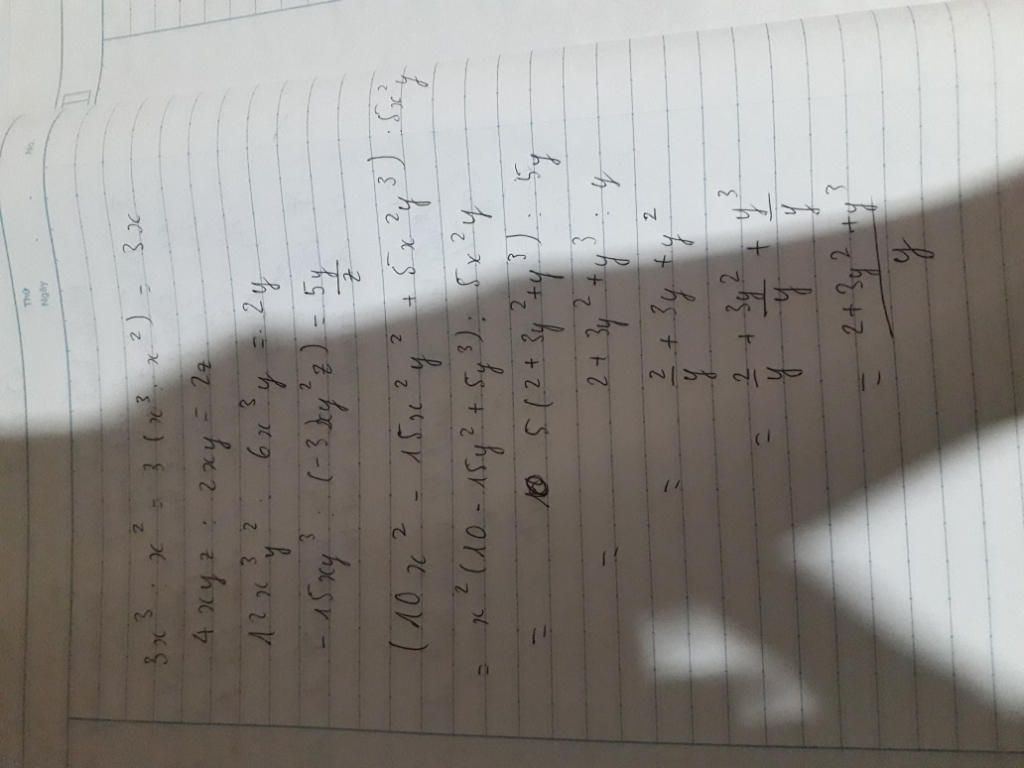 No.
THỨ
NGÀY
3x³ : x² = 3 (x³ : x²) = 3x
4xyz : 2xy = 2z
12x³y² : 6x³y = 2y
-15xy³ : (-3xy²z) = 5y/z
(10x² - 15x²y² + 5x²y³) : 5x²y
= x²(10 - 15y² + 5y³) : 5x²y
= 5(2 + 3y² + y³) : 5y
= 2 + 3y² + y³ : y
= 2/y + 3y + y²
= 2/y + 3y²/y + y³/y
= 2+3y²+y³/y